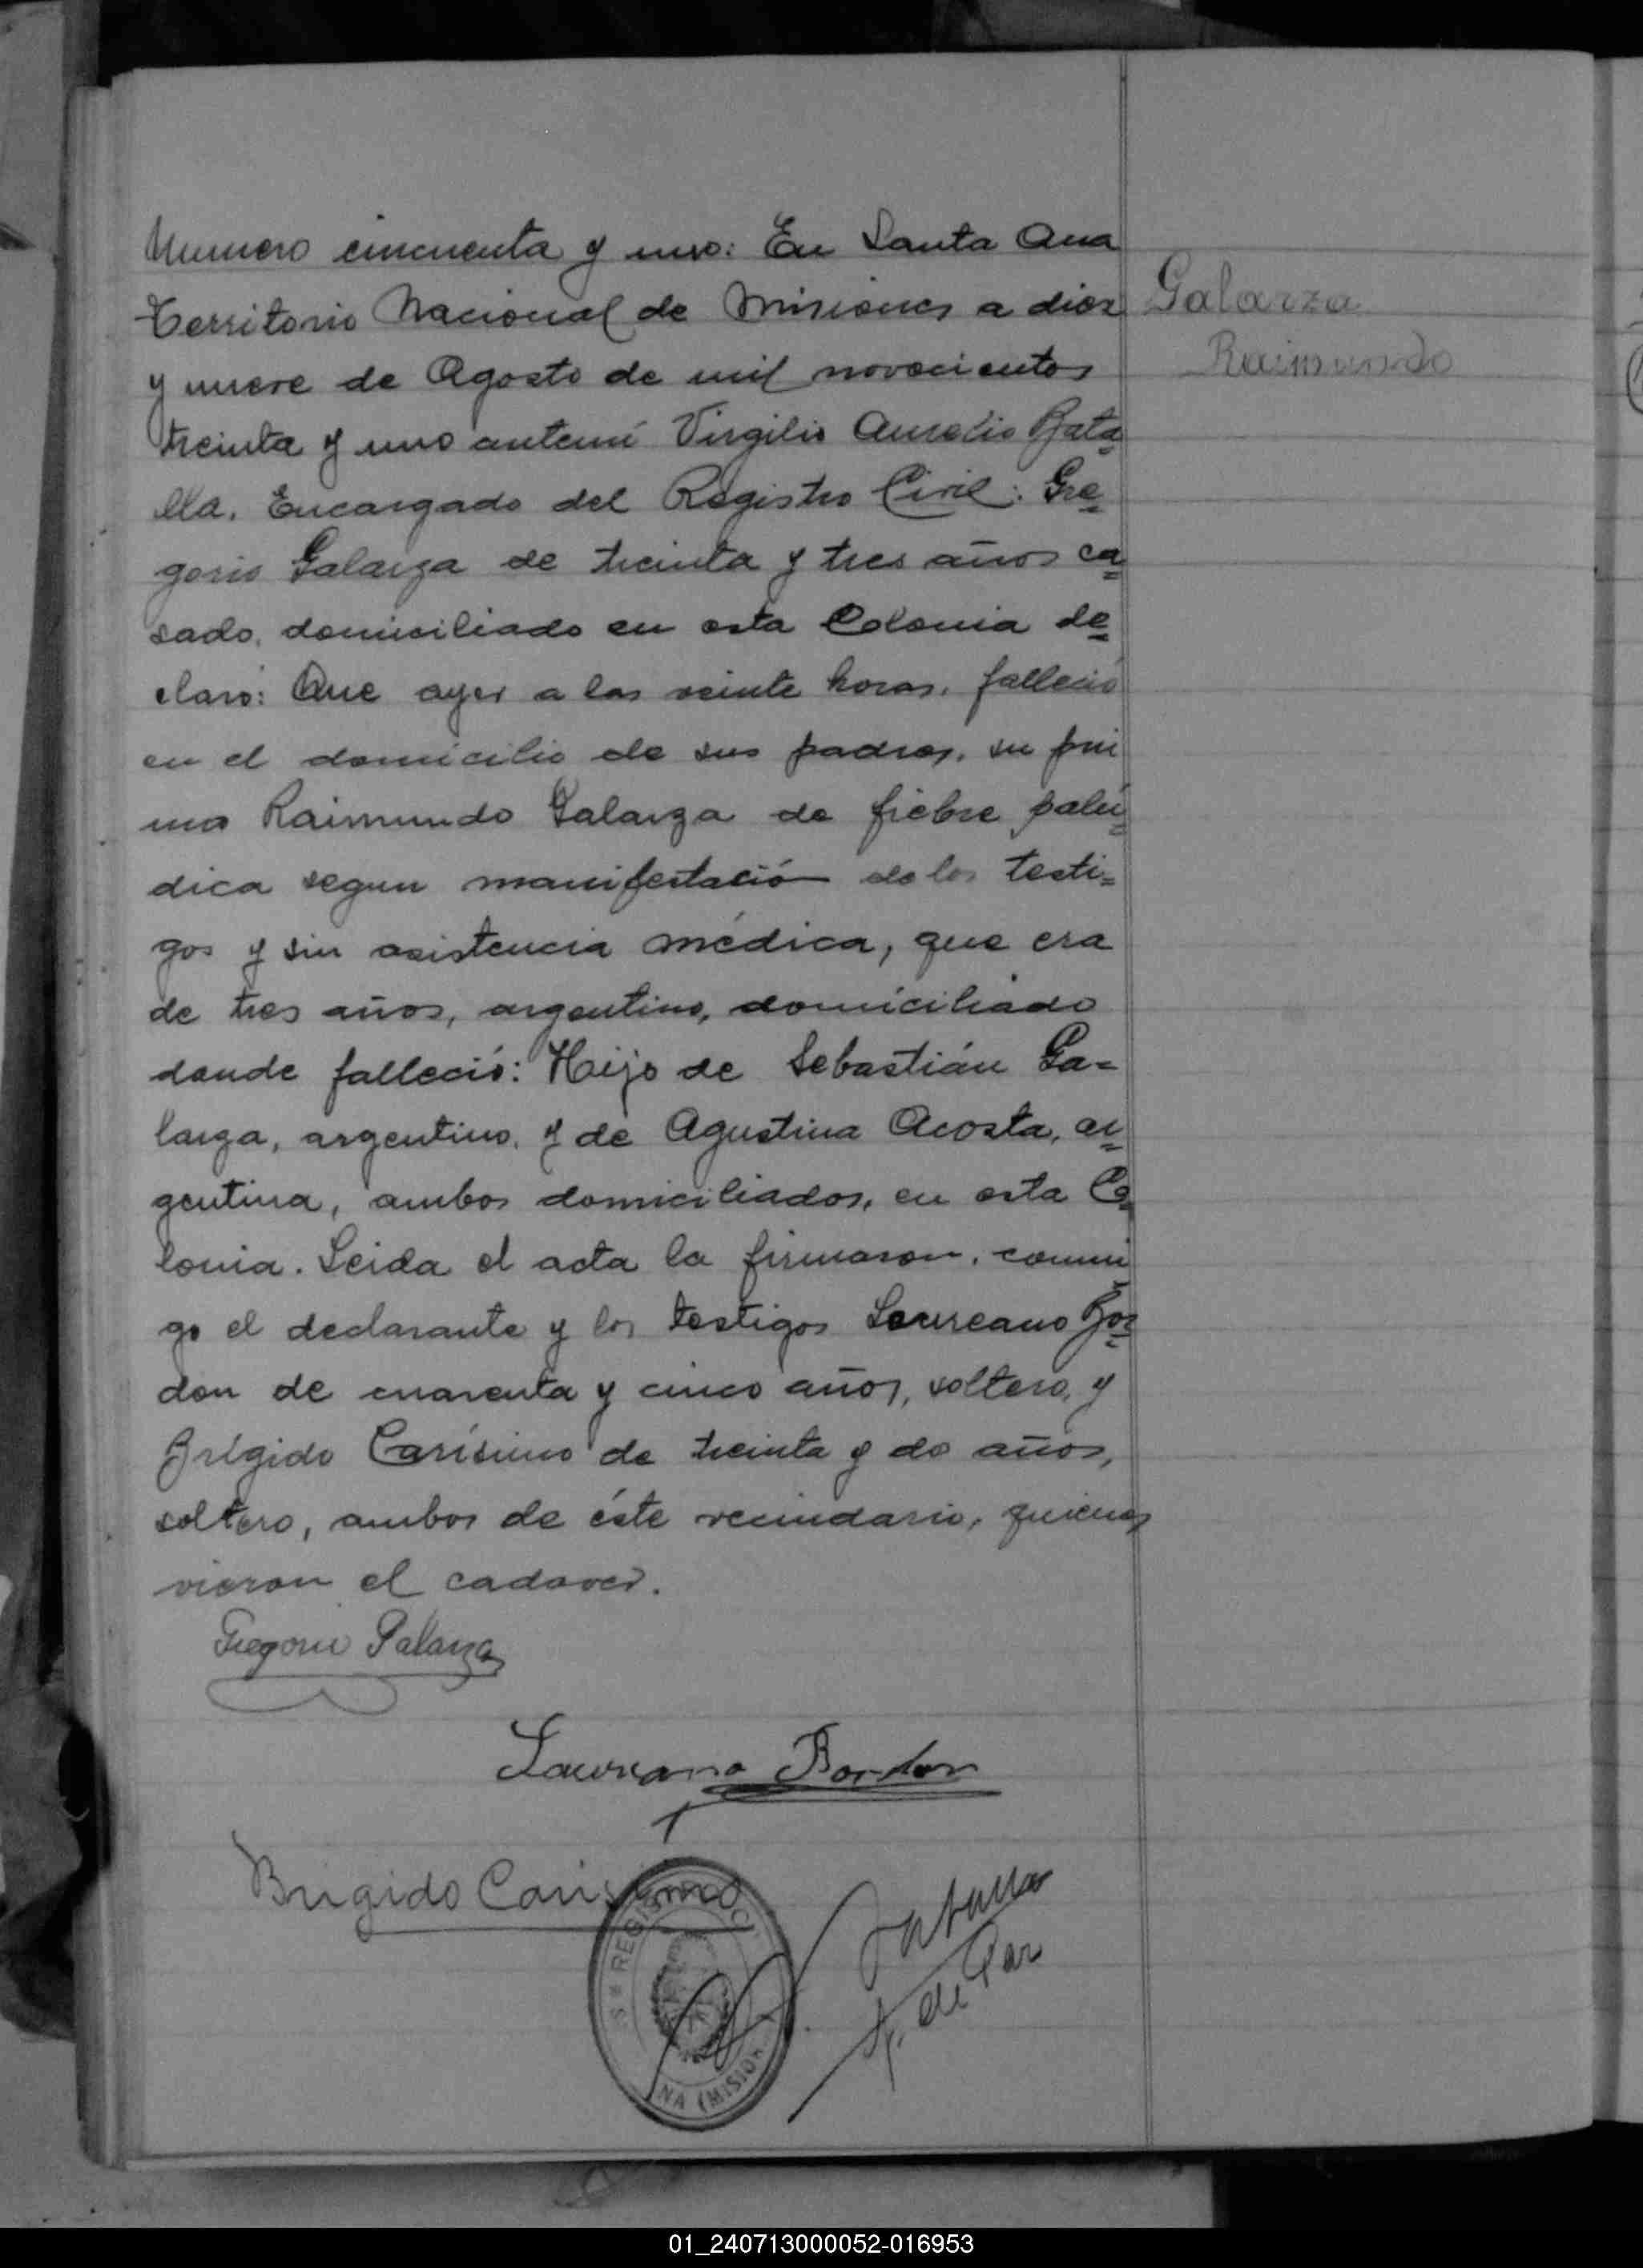 Numero cincuenta y uno: En Santa Ana
Territorio Nacional de Misiones a diez
y nueve de Agosto de mil novecientos
treinta y uno antemí Virgilio Aurelio Bata
lla. Encargado del Registro Civil: Gre
gorio Galarza de treinta y tres años ca
sado, domiciliado en esta Colonia de
claró: Que ayer a las veinte horas, falleció
en el domicilio de sus padres, su pri
mo Raimundo Galarza de fiebre palú
dica segun manifestació de los testi=
gos y sin asistencia médica, que era
de tres años, argentino, domiciliado
donde falleció: Hijo de Sebastián Ga=
larza, argentino, y de Agustina Acosta, ar
gentina, ambos domiciliados, en esta Co
lonia. Leida el acta la firmaron, conmi
go el declarante y los testigos Laureano Bor
don de cuarenta y cinco años, soltero, y
Brígido Carísimo de treinta y do años,
soltero, ambos de éste vecindario, quienes
vieron el cadaver.
Galarza
Raimundo
Gregorio Galarza
Laureano Bordon
Brigido Carisimo
Batalla
J. de Paz
S * REGISTRO CI
NA (MISION
01_240713000052-016953